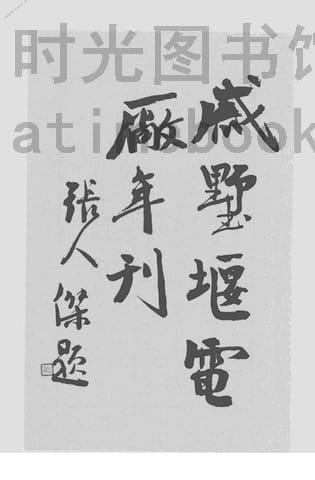 时光图书馆
atimebook
戚墅堰電
廠年刊
張人傑題